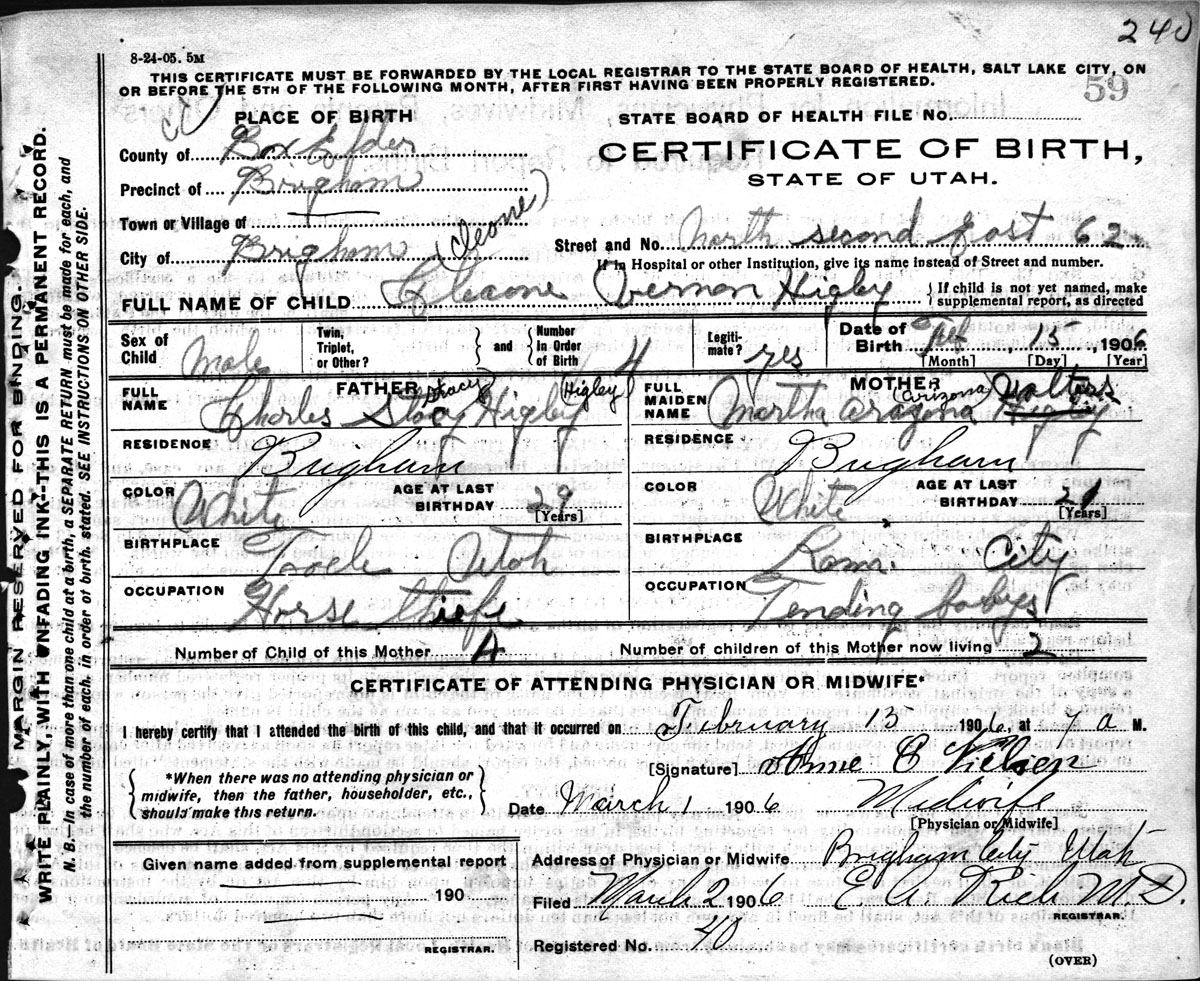 240
8-24-05. 5M
THIS CERTIFICATE MUST BE FORWARDED BY THE LOCAL REGISTRAR TO THE STATE BOARD OF HEALTH, SALT LAKE CITY, ON
OR BEFORE THE 5TH OF THE FOLLOWING MONTH, AFTER FIRST HAVING BEEN PROPERLY REGISTERED.
59
PLACE OF BIRTH
STATE BOARD OF HEALTH FILE No.
County of Box Elder
CERTIFICATE OF BIRTH,
STATE OF UTAH.
Precinct of Brigham
Town or Village of
(Cleone)
City of Brigham
Street and No. North second East 62
If in Hospital or other Institution, give its name instead of Street and number.
FULL NAME OF CHILD Cleaone Vernon Higby
If child is not yet named, make supplemental report, as directed
Sex of Child Male
Twin, Triplet, or Other?
and
Number in Order of Birth 4
Legitimate? yes
Date of Birth Feb 13, 1906
[Month] [Day] [Year]
FATHER
(Stacy) (Higley)
FULL NAME Charles Stacy Higby
MOTHER
(Arizona) Walters
FULL MAIDEN NAME Martha Arazona Higby
RESIDENCE Brigham
RESIDENCE Brigham
COLOR White
AGE AT LAST BIRTHDAY 29
[Years]
COLOR White
AGE AT LAST BIRTHDAY 21
[Years]
BIRTHPLACE Tooele Utah
BIRTHPLACE City
OCCUPATION Horse thief
OCCUPATION Tending babys
Number of Child of this Mother 4
Number of children of this Mother now living 2
CERTIFICATE OF ATTENDING PHYSICIAN OR MIDWIFE*
I hereby certify that I attended the birth of this child, and that it occurred on February 13 1906, at 7 a M.
[Signature] Anne C Nielsen
*When there was no attending physician or midwife, then the father, householder, etc., should make this return.
Date March 1 1906
Midwife
[Physician or Midwife]
Given name added from supplemental report
190
REGISTRAR.
Address of Physician or Midwife Brigham City Utah
Filed March 2 1906 E A Rich M.D.
REGISTRAR.
Registered No. 40
(OVER)
MARGIN RESERVED FOR BINDING.
WRITE PLAINLY, WITH UNFADING INK—THIS IS A PERMANENT RECORD.
N. B.—In case of more than one child at a birth, a SEPARATE RETURN must be made for each, and
the number of each, in order of birth, stated. SEE INSTRUCTIONS ON OTHER SIDE.